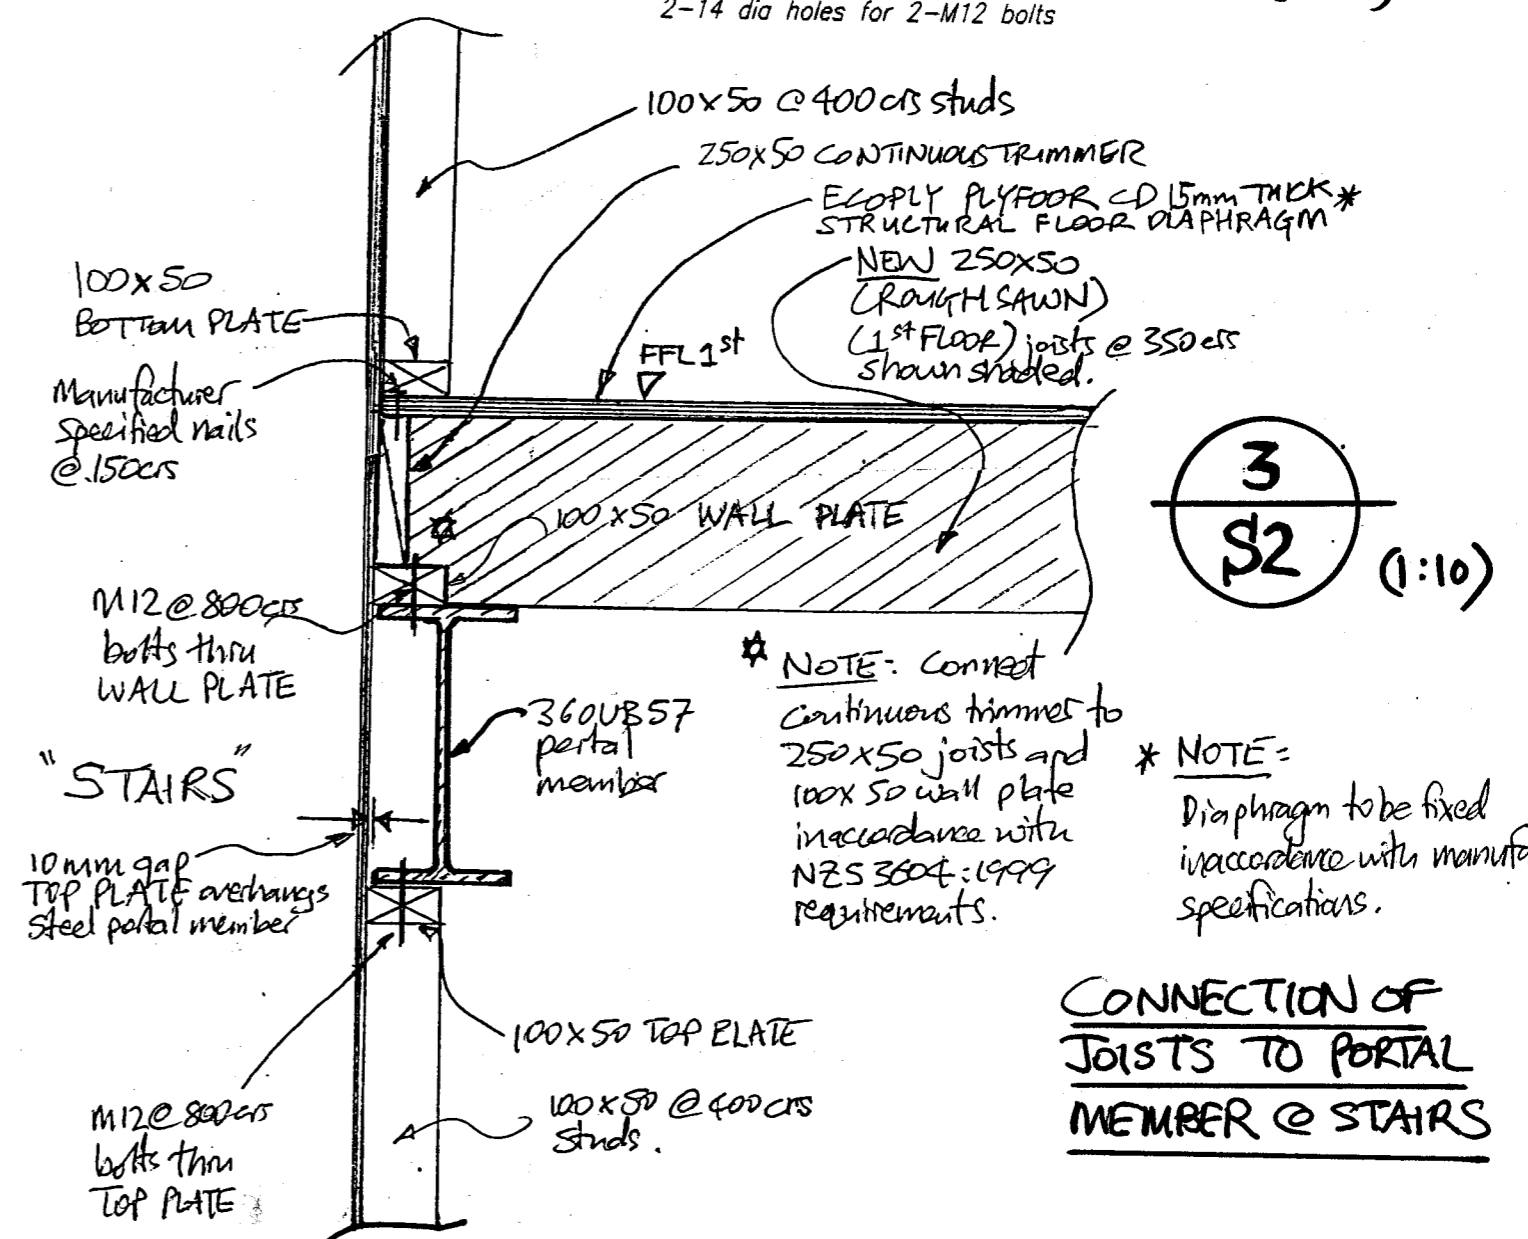 2-14 dia holes for 2-M12 bolts
100x50 @ 400 crs studs
250x50 CONTINUOUS TRIMMER
ECOPLY PLYFOOR CD 15mm THICK *
STRUCTURAL FLOOR DIAPHRAGM
NEW 250x50
(ROUGH SAWN)
(1st FLOOR) joists @ 350 crs
shown shaded.
100x50
BOTTOM PLATE
FFL 1st
Manufacturer
specified nails
@ 150crs
100x50 WALL PLATE
3
S2
(1:10)
M12 @ 800crs
bolts thru
WALL PLATE
360UB57
portal
member
NOTE: Connect
continuous trimmer to
250x50 joists and
100x50 wall plate
inaccordance with
NZS 3604:1999
requirements.
* NOTE:
Diaphragm to be fixed
inaccordance with manufa
specifications.
"STAIRS"
10mm gap
TOP PLATE overhangs
steel portal member
100x50 TOP PLATE
M12 @ 800crs
bolts thru
TOP PLATE
100x50 @ 400 crs
studs.
CONNECTION OF
JOISTS TO PORTAL
MEMBER @ STAIRS